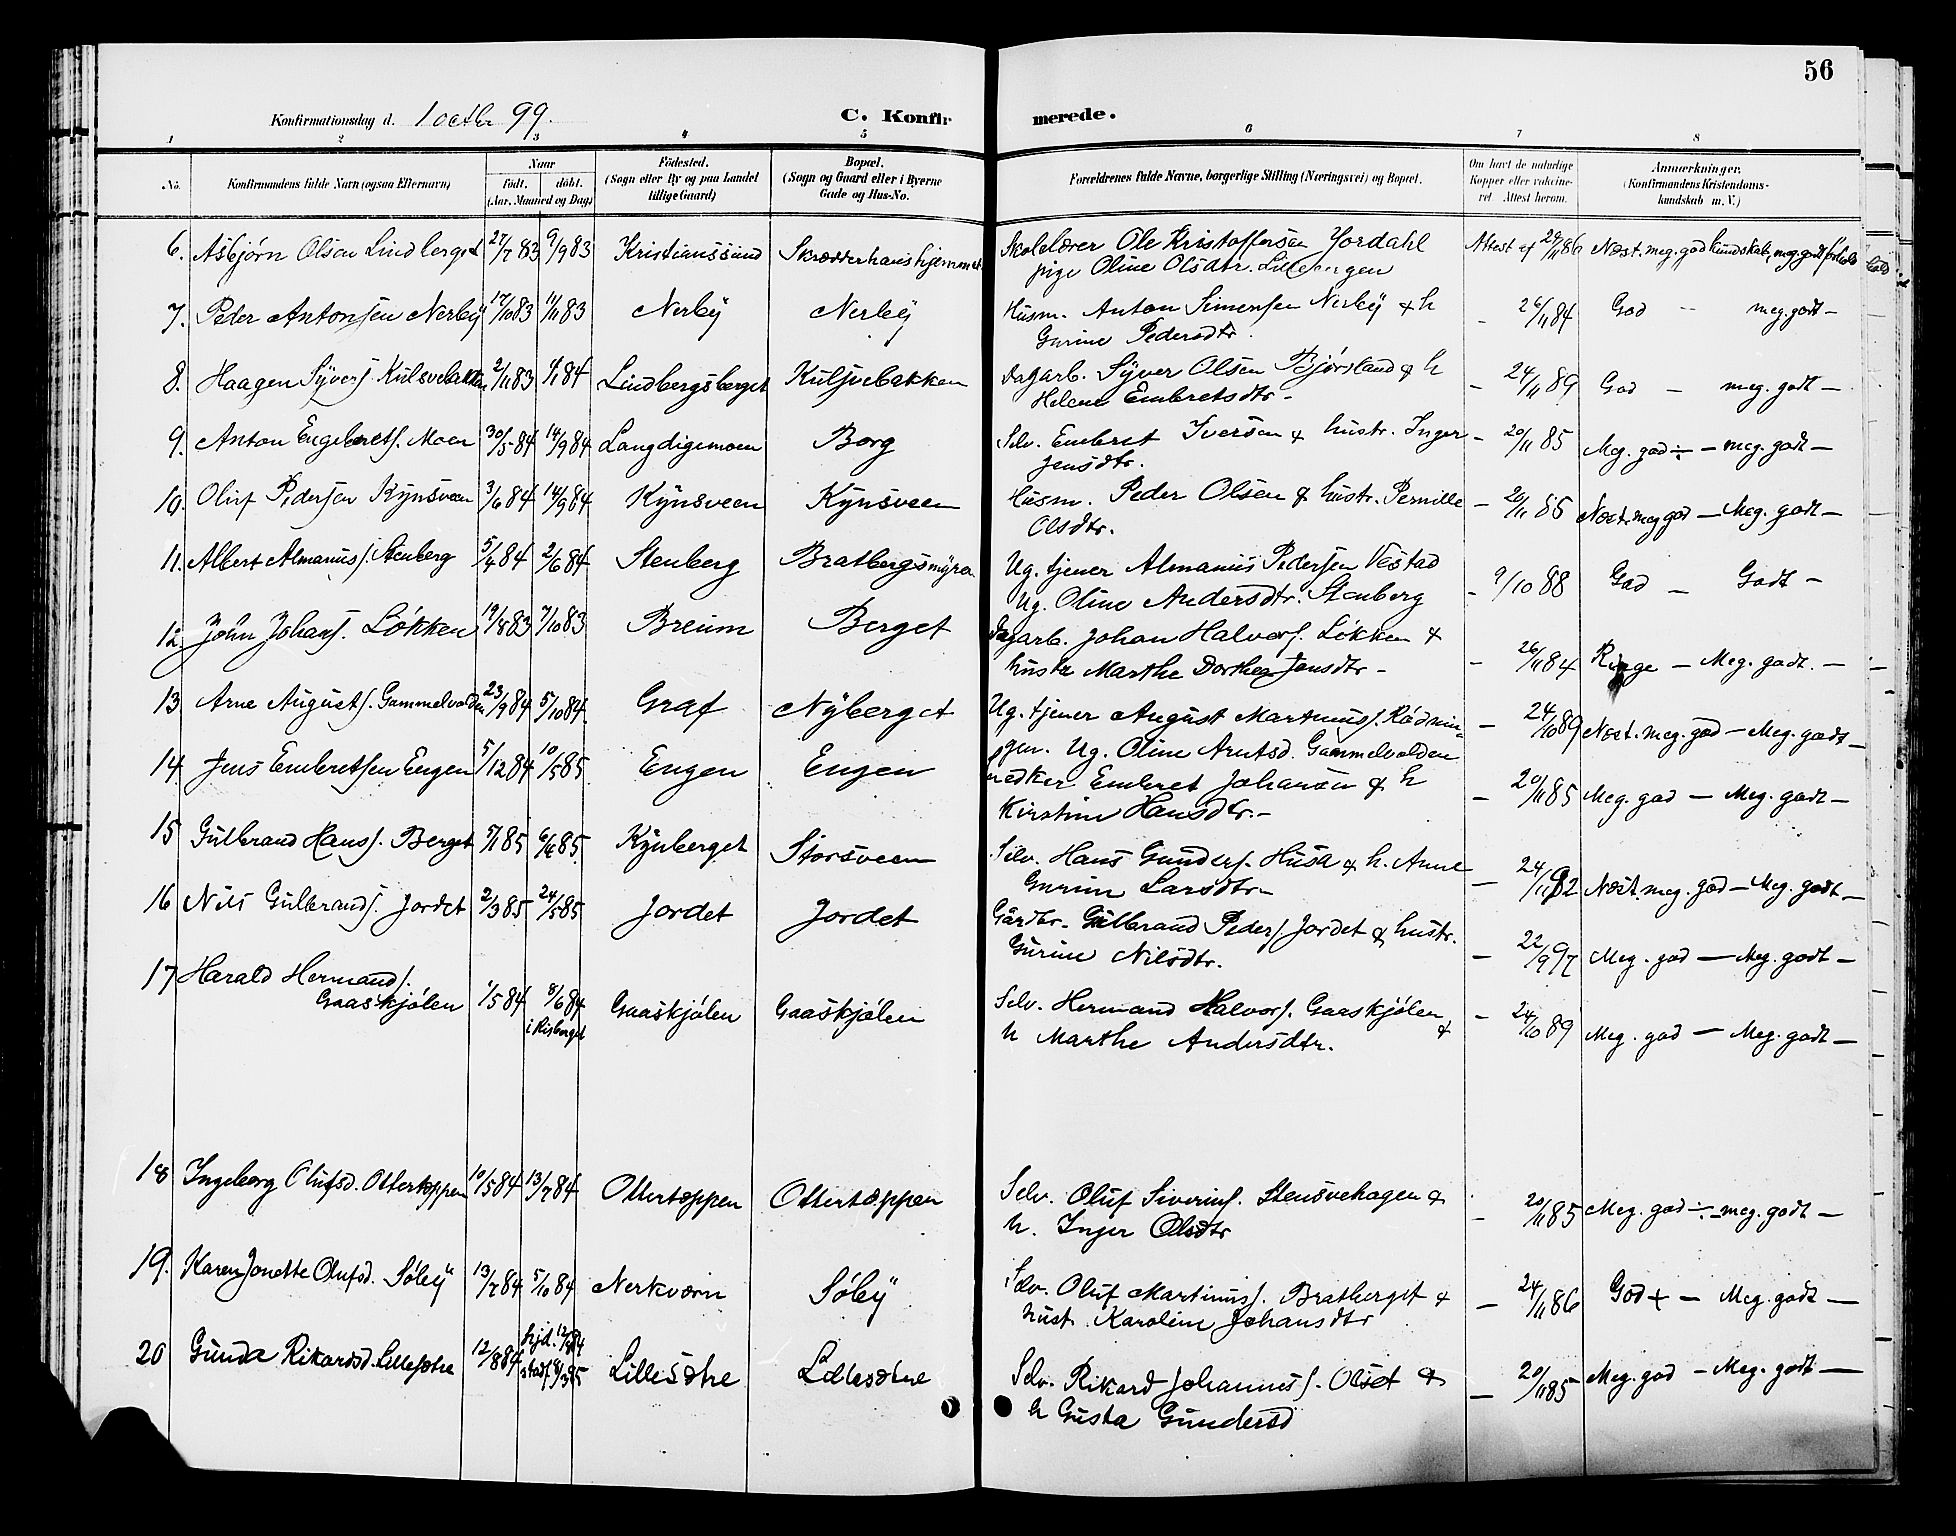 56
Konfirmationsdag d. 1 octbr 99.
C. Konfirmerede.
1 2 3 4 5 6 7 8
No.
Konfirmandens fulde Navn (ogsaa Efternavn)
Naar
født. døbt.
(Aar, Maaned og Dag)
Födested.
(Sogn eller By og paa Landet
tillige Gaard)
Bopæl.
(Sogn og Gaard eller i Byerne
Gade og Hus-No.
Forældrenes fulde Navne, borgerlige Stilling (Næringsvei) og Bopæl.
Om havt de naturlige
Kopper eller vakcine-
ret Attest herom.
Anmærkninger.
(Konfirmandens Kristendoms-
kundskab m. V.)
6. Asbjørn Olsen Lindberget 27/7 83 9/9 83 Kristianssund Skrædderhanshjemmet Skolelærer Ole Kristoffersen Jordahl Attest af 29/11 86 Næst. meg. god kundskab, meg godt forhold
pige Oline Olsdtr. Lillebergen
7. Peder Antonsen Nerby 17/10 83 11/11 83 Nerby Nerby Husm. Anton Simensen Nerby & h - 26/11 84 God - meg. godt -
Gurine Pedersdtr.
8. Haagen Syvers. Kulsvebakken 2/11 83 1/1 84 Lindbergsberget Kuljvebakken Dagarb. Syver Olsen Bjørsland & h - 24/11 89 God - meg. godt -
Helene Embretsdtr -
9. Anton Engebrets. Moen 30/5 84 14/9 84 Langdigemoen Borg Selv. Embret Iversen & hustr. Inger - 20/11 85 Meg. god ÷ - meg. godt -
Jensdtr.
10. Oluf Pedersen Kynsveen 3/6 84 14/9 84 Kynsveen Kynsveen Husm. Peder Olsen & hustr. Pernille - 20/11 85 Næst. meg god - Meg. godt -
Olsdtr.
11. Albert Almanus s. Stenberg 5/4 84 2/6 84 Stenberg Bratbergsmyra Ug. tjener Almanus Pedersen Vestad - 9/10 88 God - Godt -
Ug. Oline Andersdtr. Stenberg
12. John Johans. Løkken 19/8 83 7/10 83 Breum Berget Dagarb. Johan Halvors. Løkken & - 26/11 84 Ringe - Meg. godt. -
hustr Marthe Dorthea Jensdtr -
13 Arne Augusts. Gammelvolden 23/9 84 5/10 84 Graf Nyberget Ug. tjener August Martinus s. Rødnin- - 24/10 89 Næst. meg. god - Meg. godt -
gen. Ug. Oline Arntsd. Gammelvolden
14 Jens Embretsen Engen 5/12 84 10/5 85 Engen Engen Embret Johansen & h - 20/11 85 Meg. god - Meg. godt -
Kirstine Hansdtr. -
15 Gulbrand Hans s. Berget 5/1 85 6/4 85 Kynberget Storsveen Selv. Hans Gunders. Husa & h. Anne - 24/11 92 Næst. meg. god - Meg. godt -
Gurine Larsdtr -
16 Nils Gulbrands. Jordet 2/3 85 24/5 85 Jordet Jordet Gårdbr. Gulbrand Peders. Jordet & hustr. - 22/9 97 Meg. god - Meg. godt -
Gurine Nilsdtr.
17 Harald Hermands.
Gaaskjølen 1/5 84 8/6 84 Gaaskjølen Gaaskjølen Selv. Hermand Halvors. Gaaskjølen & - 24/10 89 Meg. god - Meg. godt -
i Risberget
h Marthe Andersdtr.
18 Ingeborg Olufsd. Ottertoppen 10/5 84 13/7 84 Ottertoppen Ottertoppen Selv. Oluf Siverins. Stensvehagen & - 20/11 85 Meg. god ÷ - meg. godt -
h. Inger Olsdtr
19. Karen Jonette Olufsd. Søby 13/7 84 5/10 84 Nerkværn Søby Selv. Oluf Martinus s. Bratberget & - 24/11 86 God + - Meg. godt -
hust. Karoline Johansdtr
20 Gunda Rikardsd. Lillesætre 12/8 84 hjd. Lillesætre Lillesætre Selv. Rikard Johannes s. Olset & - 20/11 85 Meg. god - Meg. godt -
h Gusta Gundersd